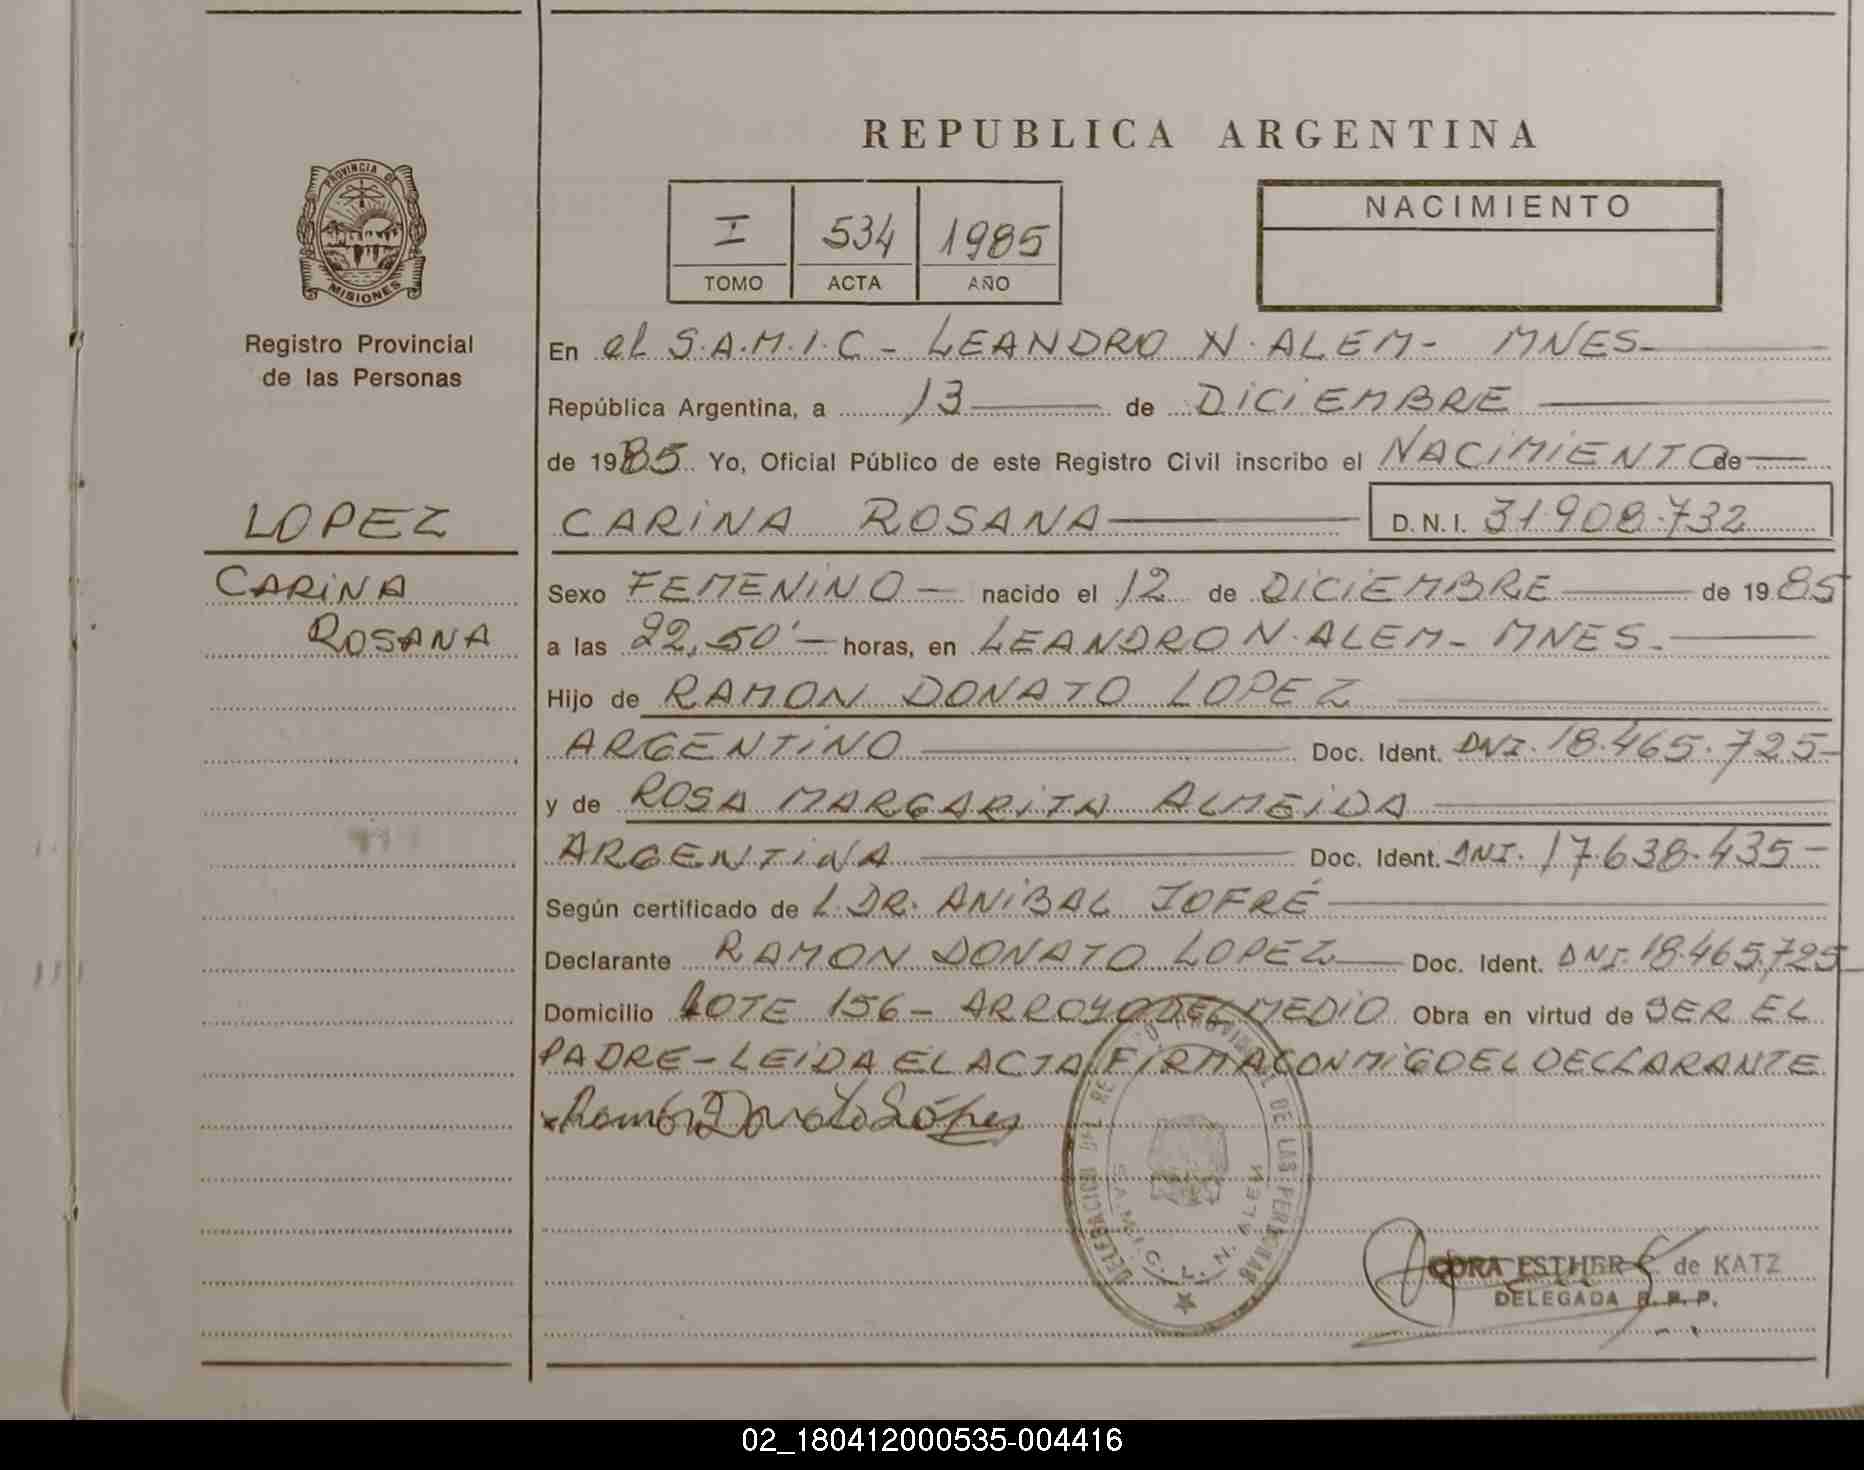 REPUBLICA ARGENTINA
PROVINCIA DE
MISIONES
Registro Provincial
de las Personas
I 534 1985
TOMO ACTA AÑO
NACIMIENTO
En el S.A.M.I.C - LEANDRO N. ALEM - MNES-
República Argentina, a 13 de DICIEMBRE
de 1985 Yo, Oficial Público de este Registro Civil inscribo el NACIMIENTO de
LOPEZ
CARINA ROSANA D.N.I. 31.908.732
CARINA
ROSANA
Sexo FEMENINO - nacido el 12 de DICIEMBRE de 1985
a las 22,50' - horas, en LEANDRO N. ALEM - MNES.
Hijo de RAMON DONATO LOPEZ
ARGENTINO Doc. Ident. DNI. 18.465.725-
y de ROSA MARGARITA ALMEIDA
ARGENTINA Doc. Ident. DNI. 17.638.435-
Según certificado de L. DR. ANIBAL JOFRÉ
Declarante RAMON DONATO LOPEZ Doc. Ident. DNI. 18.465.725
Domicilio LOTE 156 - ARROYO DEL MEDIO Obra en virtud de SER EL
PADRE - LEIDA EL ACTA FIRMA CONMIGO EL DECLARANTE
Ramón Donato López
DELEGACION DEL REGISTRO PROVINCIAL DE LAS PERSONAS
S.A.M.I.C. L. N. ALEM
CORA ESTHER C. de KATZ
DELEGADA R. P. P.
02_180412000535-004416